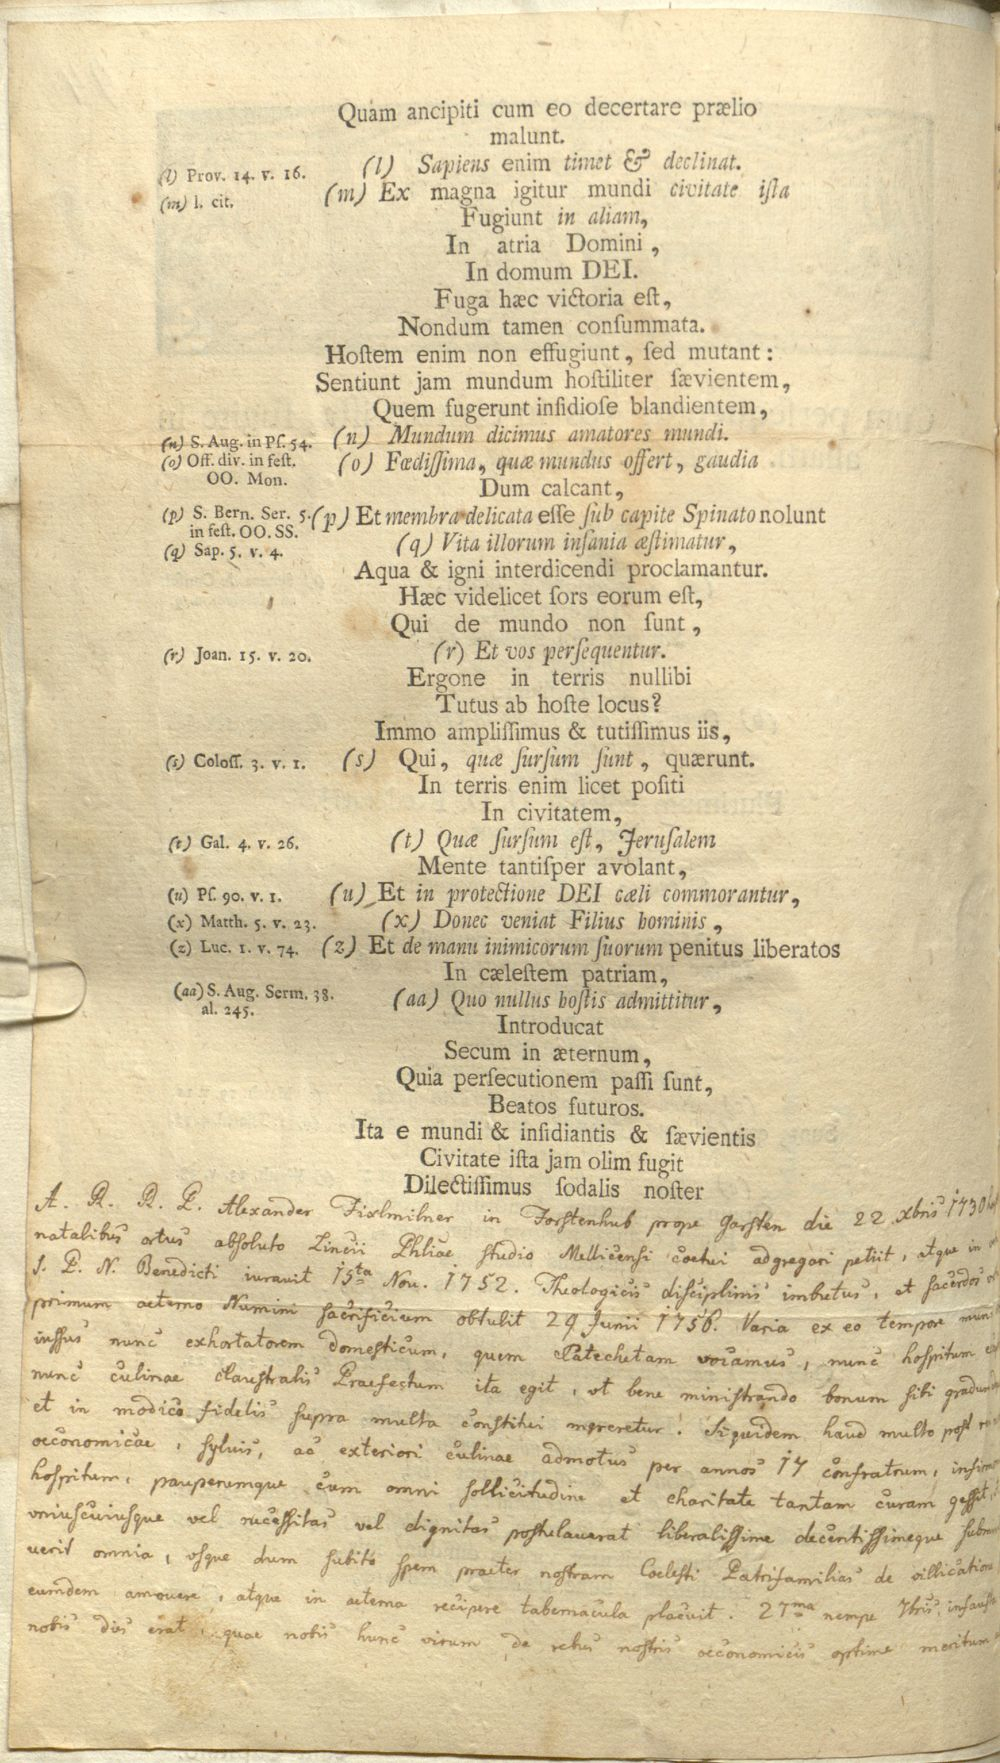 Quàm ancipiti cum eo decertare prælio
malunt.
(l) Prov. 14. v. 16. (l) Sapiens enim timet & declinat.
(m) l. cit. (m) Ex magna igitur mundi civitate iſta
Fugiunt in aliam,
In atria Domini,
In domum DEI.
Fuga hæc victoria eſt,
Nondum tamen conſummata.
Hoſtem enim non effugiunt, ſed mutant:
Sentiunt jam mundum hoſtiliter ſævientem,
Quem fugerunt inſidioſe blandientem,
(n) S. Aug. in Pſ. 54. (n) Mundum dicimus amatores mundi.
(o) Off. div. in feſt. (o) Fœdiſſima, quæ mundus offert, gaudia
OO. Mon.
Dum calcant,
(p) S. Bern. Ser. 5. (p) Et membra delicata eſſe ſub capite Spinato nolunt
in feſt. OO. SS.
(q) Sap. 5. v. 4. (q) Vita illorum inſania æſtimatur,
Aqua & igni interdicendi proclamantur.
Hæc videlicet ſors eorum eſt,
Qui de mundo non ſunt,
(r) Joan. 15. v. 20. (r) Et vos perſequentur.
Ergone in terris nullibi
Tutus ab hoſte locus?
Immo ampliſſimus & tutiſſimus iis,
(s) Coloſſ. 3. v. 1. (s) Qui, quæ ſurſum ſunt, quærunt.
In terris enim licet poſiti
In civitatem,
(t) Gal. 4. v. 26. (t) Quæ ſurſum eſt, Jeruſalem
Mente tantiſper avolant,
(u) Pſ. 90. v. 1. (u) Et in protectione DEI cæli commorantur,
(x) Matth. 5. v. 23. (x) Donec veniat Filius hominis,
(z) Luc. 1. v. 74. (z) Et de manu inimicorum ſuorum penitus liberatos
In cæleſtem patriam,
(aa) S. Aug. Serm. 38. (aa) Quo nullus hoſtis admittitur,
al. 245.
Introducat
Secum in æternum,
Quia perſecutionem paſſi ſunt,
Beatos futuros.
Ita e mundi & inſidiantis & ſævientis
Civitate iſta jam olim fugit
Dilectiſſimus ſodalis noſter
A. R. R. P. Alexander Fixlmilner in Forstenhub prope Garsten die 22 xbris 1730
natalibus ortus absoluto Lincii Phliae studio Mellicensi coetui adgregari petiit, atque in
S. P. N. Benedicti iuravit 15ta Nov. 1752. Theologicis disciplinis imbutus, et sacerdos
primum aeterno Numini sacrificium obtulit 29 Junii 1756. Varia ex eo tempore
iussus nunc exhortatorem domesticum, quem Catechetam vocamus, nunc hospitum
nunc culinae claustralis Praefectum ita egit, ut bene ministrando bonum sibi gradum
et in modico fidelis supra multa constitui mereretur. Siquidem haud multo post
oeconomicae, sylvis, ac exteriori culinae admotus per annos 17 confratrum,
hospitum, pauperumque cum omni sollicitudine et charitate tantam curam gessit,
uniuscuiusque vel necessitas vel dignitas postulaverat liberalissime decentissimeque
verit omnia, usque dum subito spem praeter nostram Coelesti Patrifamilias de villicatione
eumdem amovere, atque in aeterna recipere tabernacula placuit. 27ma nempe 7bris, infausta
nobis dies erat, quae nobis hunc virum de rebus nostris oeconomicis optime meritum